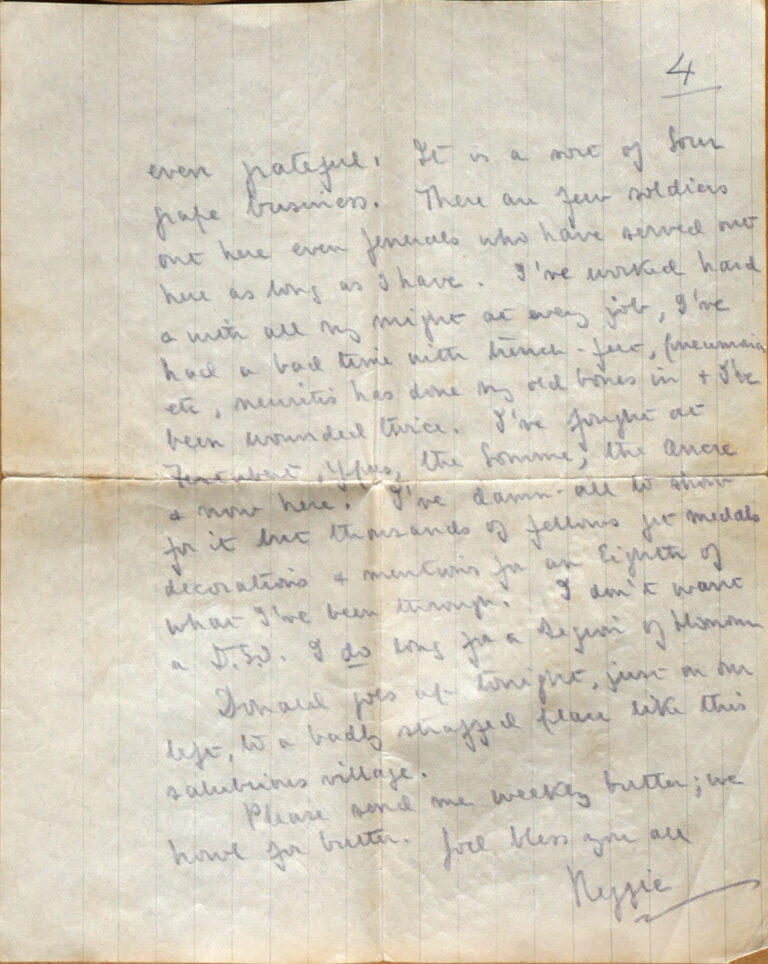 4
even grateful. It is a sort of Sour
grape business. There are few soldiers
out here even generals who have served out
here as long as I have. I've worked hard
& with all my might at every job, I've
had a bad time with trench-feet, pneumonia
etc, neuritis has done my old bones in & I've
been wounded twice. I've fought at
Festubert, Ypres, the Somme, the Ancre
& now here. I've damn-all to show
for it but thousands of fellows get medals
decorations & mentions for an Eighth of
what I've been through. I don't want
a D.S.O. I do long for a Legion of Honour
Donald goes up tonight, just on our
left, to a badly straffed place like this
salubrious village.
Please send me weekly butter; we
howl for butter. God bless you all
Reggie